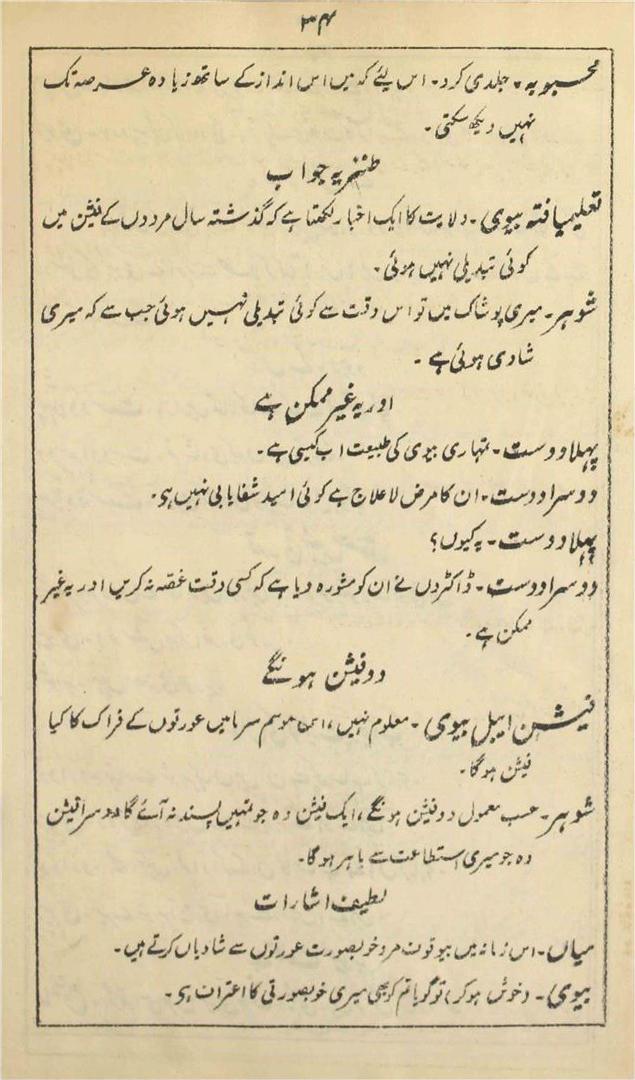 ۳۴
محبوبہ۔ جلدی کرو۔ اس لیئے کہ میں اس انداز کے ساتھ زیادہ عرصہ تک
نہیں دیکھ سکتی۔
طنزیہ جواب
تعلیمیافتہ بیوی۔ ولایت کا ایک اخبار لکھتا ہے کہ گذشتہ سال مردوں کے فیشن میں
کوئی تبدیلی نہیں ہوئی۔
شوہر۔ میری پوشاک میں تو اس وقت سے کوئی تبدیلی نہیں ہوئی جب سے کہ میری
شادی ہوئی ہے۔
اور یہ غیر ممکن ہے
پہلا دوست۔ تمہاری بیوی کی طبیعت اب کیسی ہے۔
دوسرا دوست۔ ان کا مرض لاعلاج ہے کوئی امید شفایابی نہیں ہو۔
پہلا دوست۔ یہ کیوں؟
دوسرا دوست۔ ڈاکٹروں نے ان کو مشورہ دیا ہے کہ کسی وقت غصہ نہ کریں اور یہ غیر
ممکن ہے۔
دو فیشن ہونگے
فیشن ایبل بیوی۔ معلوم نہیں، اس موسم سرما میں عورتوں کے فراک کا کیا
فیشن ہوگا۔
شوہر۔ حسب معمول دو فیشن ہونگے، ایک فیشن وہ جو تمہیں پسند نہ آئے گا دوسرا فیشن
وہ جو میری استطاعت سے باہر ہوگا۔
لطیف اشارات
میاں۔ اس زمانہ میں بیوقوف مرد خوبصورت عورتوں سے شادیاں کرتے ہیں۔
بیوی۔ (خوش ہوکر) تو گویا تم کو بھی میری خوبصورتی کا اعتراف ہو۔